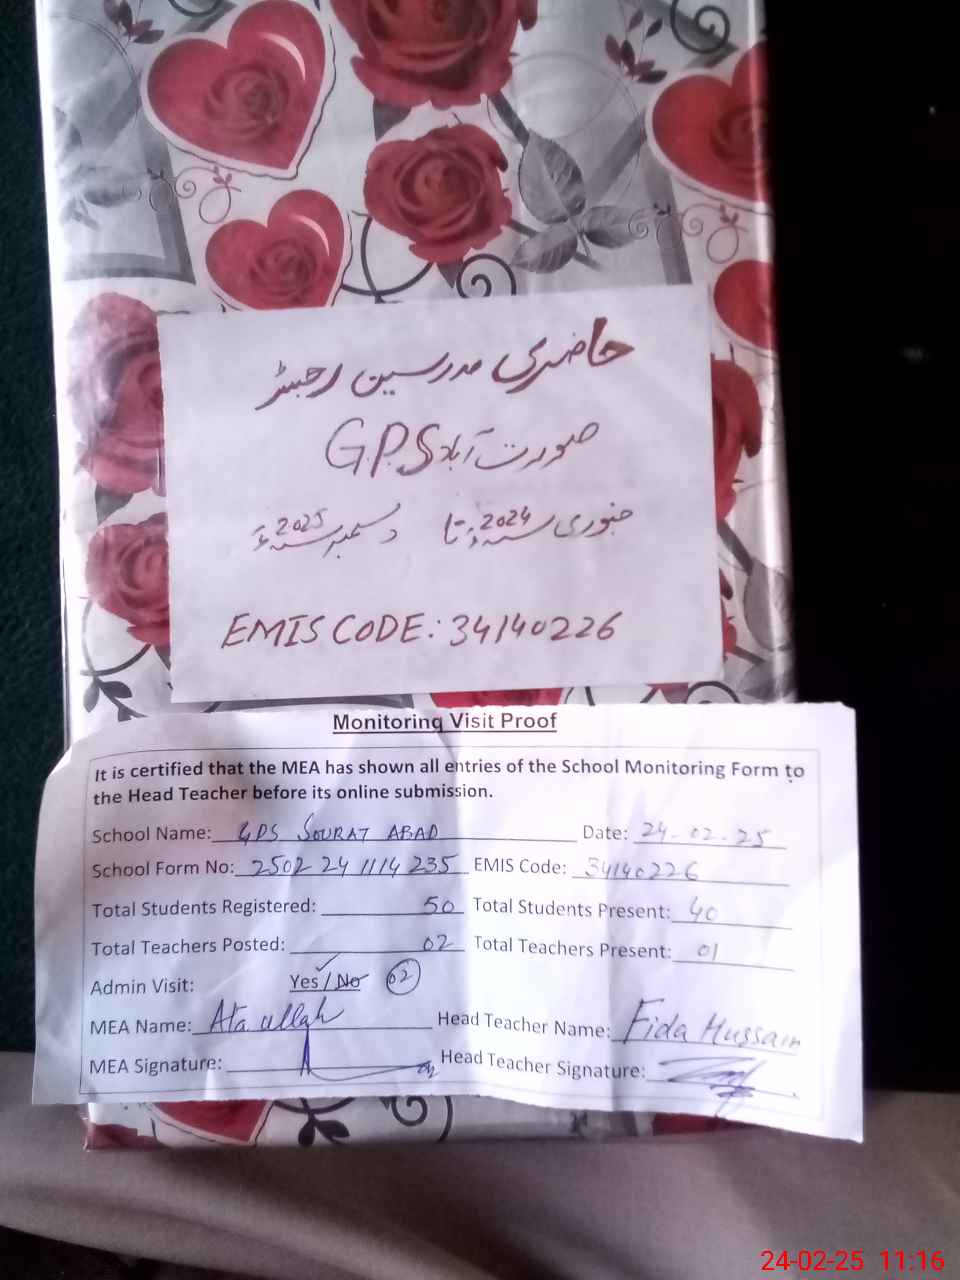 حاضری مدرسین رجسٹر
G.P.S صورت آباد
جنوری سنہ 2024ء تا دسمبر سنہ 2025ء
EMIS CODE: 34140226
Monitoring Visit Proof
It is certified that the MEA has shown all entries of the School Monitoring Form to
the Head Teacher before its online submission.
School Name: GPS SOURAT ABAD Date: 24-02-25
School Form No: 2502 24 1114 235 EMIS Code: 34140226
Total Students Registered: 50 Total Students Present: 40
Total Teachers Posted: 02 Total Teachers Present: 01
Admin Visit: Yes / No 02
MEA Name: Ata ullah Head Teacher Name: Fida Hussain
MEA Signature: Head Teacher Signature:
24-02-25 11:16